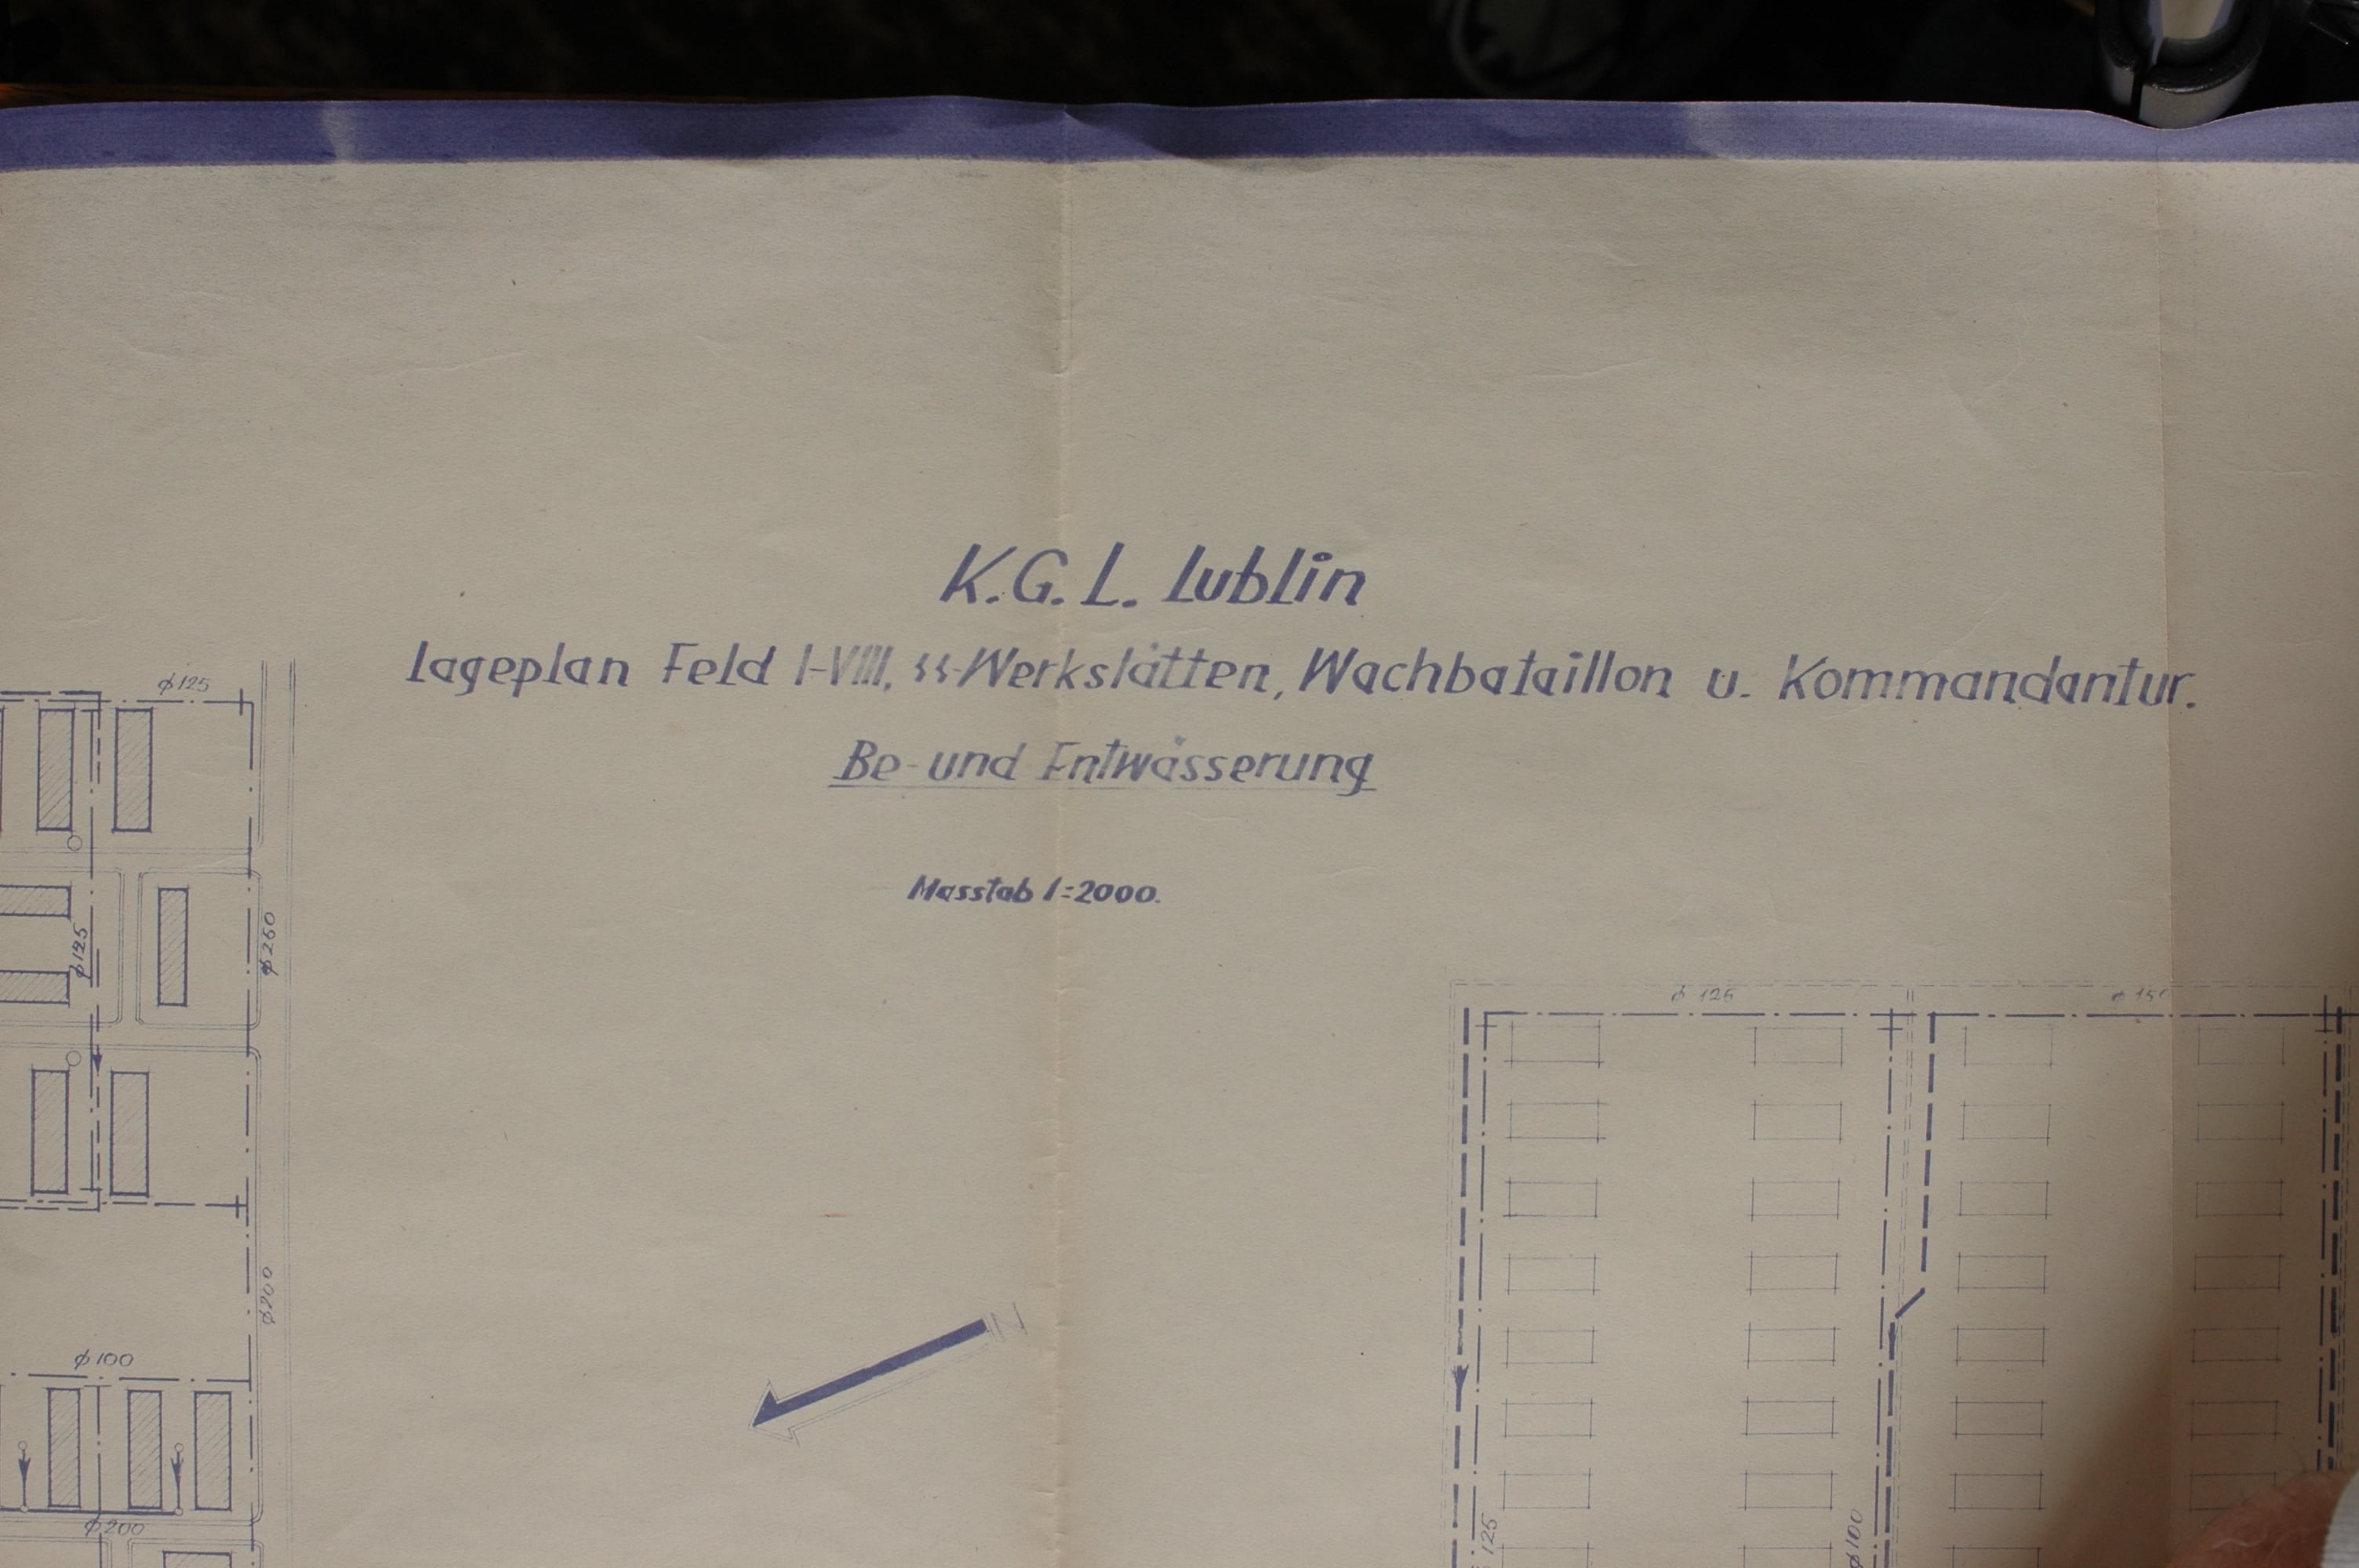 K.G.L. Lublin
Lageplan Feld I-VIII, SS-Werkstätten, Wachbataillon u. Kommandantur.
Be- und Entwässerung
Masstab 1:2000.
ø125
ø125
ø260
ø200
ø100
ø200
N
ø 125
ø 150
ø100
125